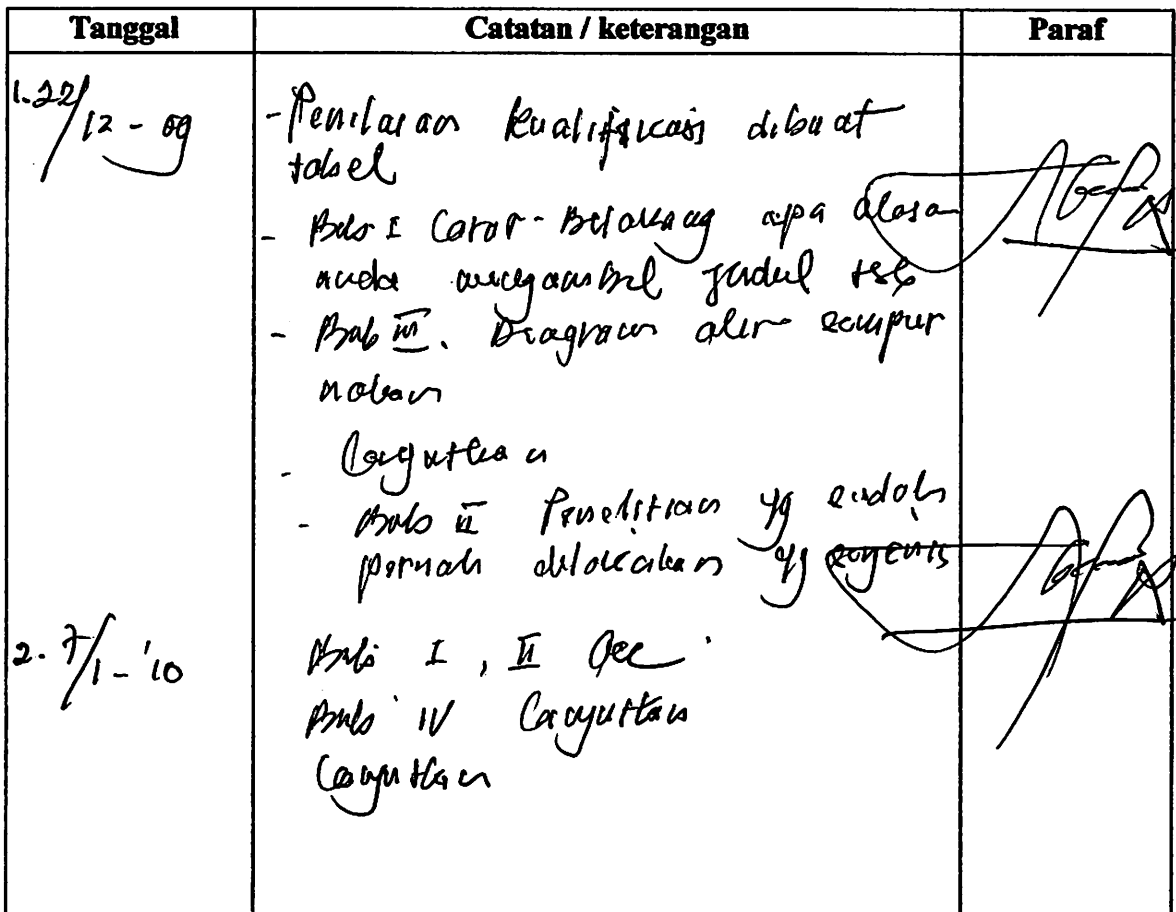 Tanggal Catatan / keterangan Paraf
1. 22/12 - 09
- Penilaian kualifikasi dibuat
tabel
- Bab I Latar - Belakang apa alasan
anda mengambil judul tsb
- Bab III. Diagram alir sempur
nakan
- Lanjutkan
- Bab II Penelitian yg sudah
pernah dilakukan yg sejenis
2. 7/1 - '10
Bab I, II Acc
Bab IV Lanjutkan
Lanjutkan